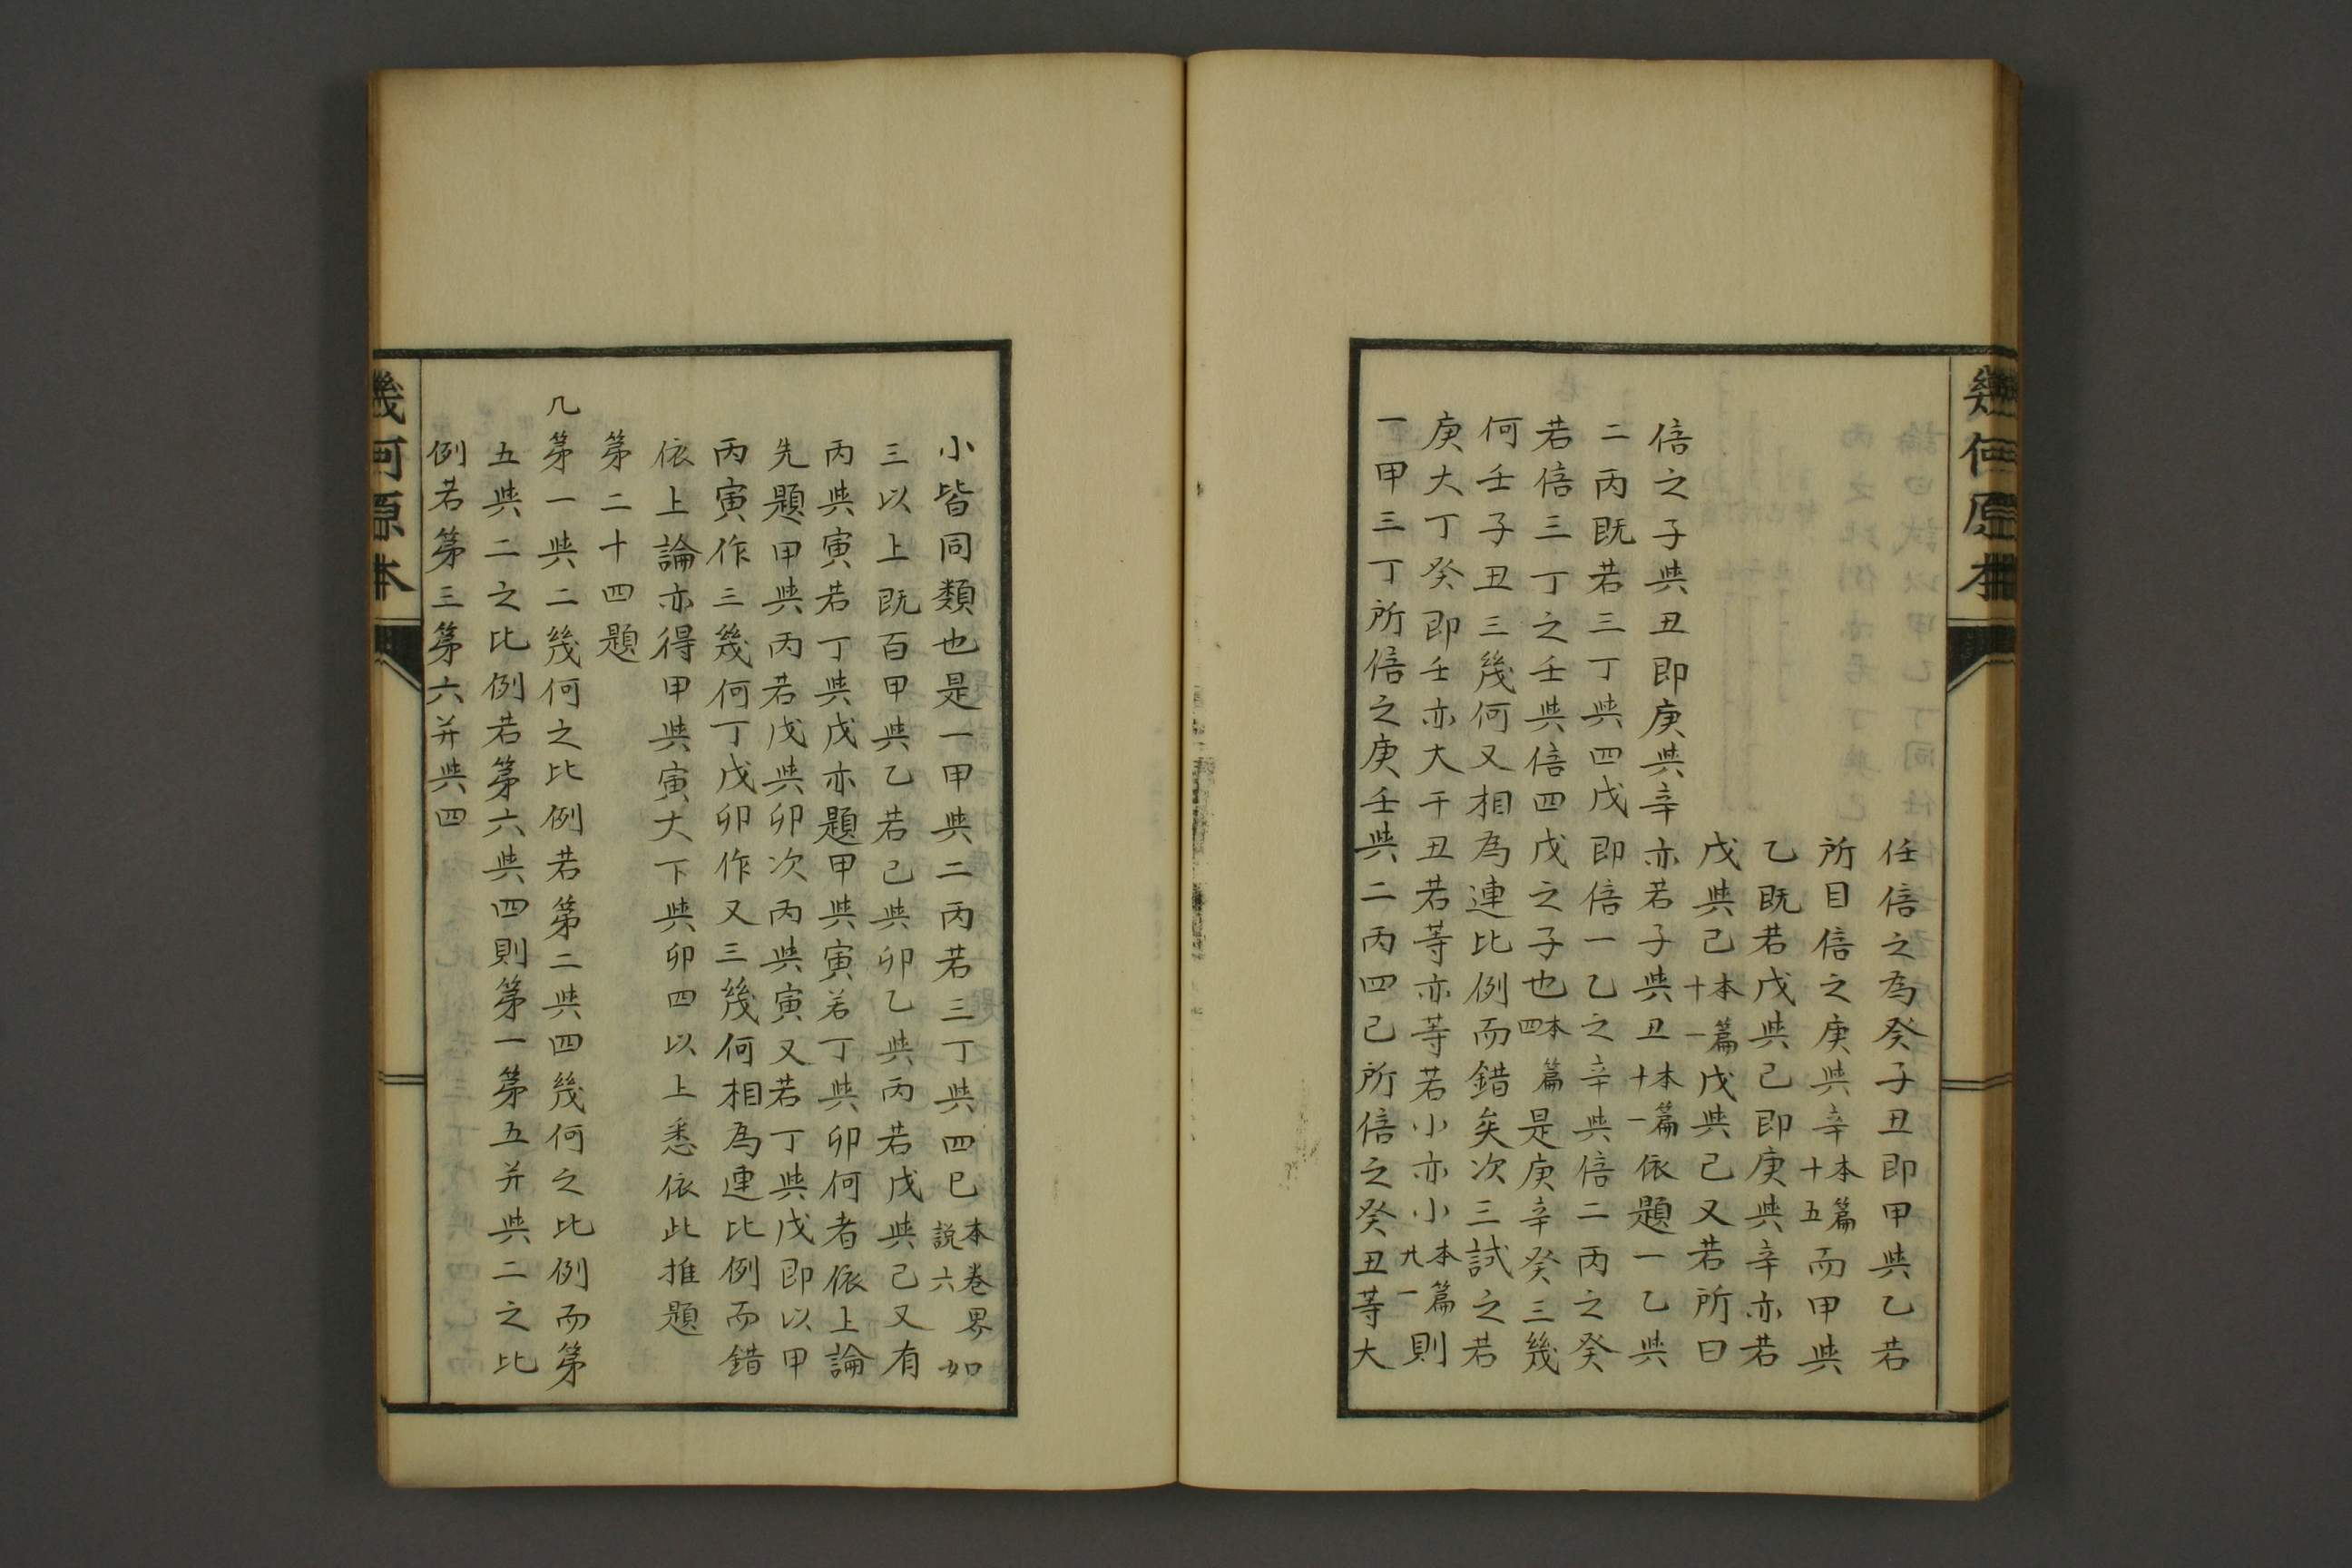 幾何原本
任倍之為癸子丑即甲與乙若
所目倍之庚與辛本篇十五而甲與
乙既若戊與己即庚與辛亦若
戊與己本篇十一戊與己又若所曰
倍之子與丑即庚與辛亦若子與丑本篇十一依題一乙與
二丙既若三丁與四戊即倍一乙之辛與倍二丙之癸
若倍三丁之壬與倍四戊之子也本篇四是庚辛癸三幾
何壬子丑三幾何又相為連比例而錯矣次三試之若
庚大丁癸即壬亦大干丑若等亦等若小亦小本篇一九則
一甲三丁所倍之庚壬與二丙四己所倍之癸丑等大
小皆同類也是一甲與二丙若三丁與四巳本卷界說六如
三以上既百甲與乙若己與卯乙與丙若戊與己又有
丙與寅若丁與戊亦題甲與寅若丁與卯何者依上論
先題甲與丙若戊與卯次丙與寅又若丁與戊即以甲
丙寅作三幾何丁戊卯作又三幾何相為連比例而錯
依上論亦得甲與寅大下與卯四以上悉依此推題
第二十四題
凡第一與二幾何之比例若第二與四幾何之比例而第
五與二之比例若第六與四則第一第五并與二之比
例若第三第六并與四
幾何原本